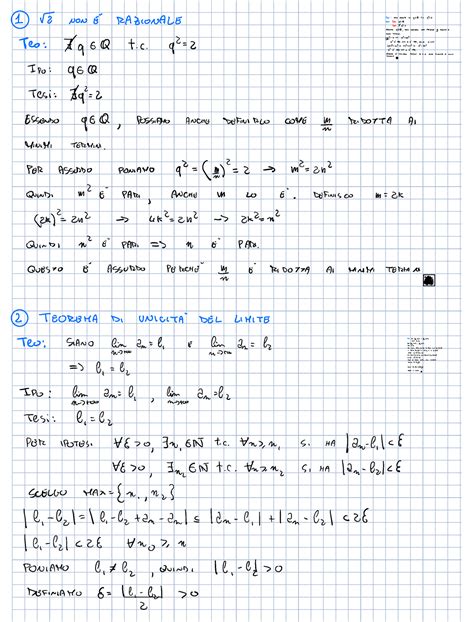 ① √2 NON È RAZIONALE
Teo: ∄ q ∈ Q t.c. q² = 2
Ipo: q ∈ Q
Tesi: ∄ q² = 2
ESSENDO q ∈ Q, POSSIAMO ANCHE DEFINIRLO COME m/n RIDOTTA AI
MINIMI TERMINI.
PER ASSURDO PONIAMO q² = (m/n)² = 2 → m² = 2n²
QUINDI m² È PARI, ANCHE m LO È. DEFINISCO m = 2k
(2k)² = 2n² → 4k² = 2n² → 2k² = n²
QUINDI n² È PARI ⇒ n È PARI.
QUESTO È ASSURDO PERCHÉ m/n È RIDOTTA AI MINIMI TERMINI
② TEOREMA DI UNICITÀ DEL LIMITE
Teo: SIANO lim n→+∞ an = l1 e lim n→+∞ an = l2
⇒ l1 = l2
Ipo: lim n→+∞ an = l1, lim n→+∞ an = l2
Tesi: l1 = l2
PER IPOTESI ∀ε>0, ∃n1 ∈ N t.c. ∀n ≥ n1 SI HA |an - l1| < ε
∀ε>0, ∃n2 ∈ N t.c. ∀n ≥ n2 SI HA |an - l2| < ε
SCELGO MAX = {n1, n2}
|l1 - l2| = |l1 - l2 + an - an| ≤ |an - l1| + |an - l2| < 2ε
|l1 - l2| < 2ε ∀n0 ≥ n
PONIAMO l1 ≠ l2, QUINDI |l1 - l2| > 0
DEFINIAMO ε = |l1 - l2| / 2 > 0